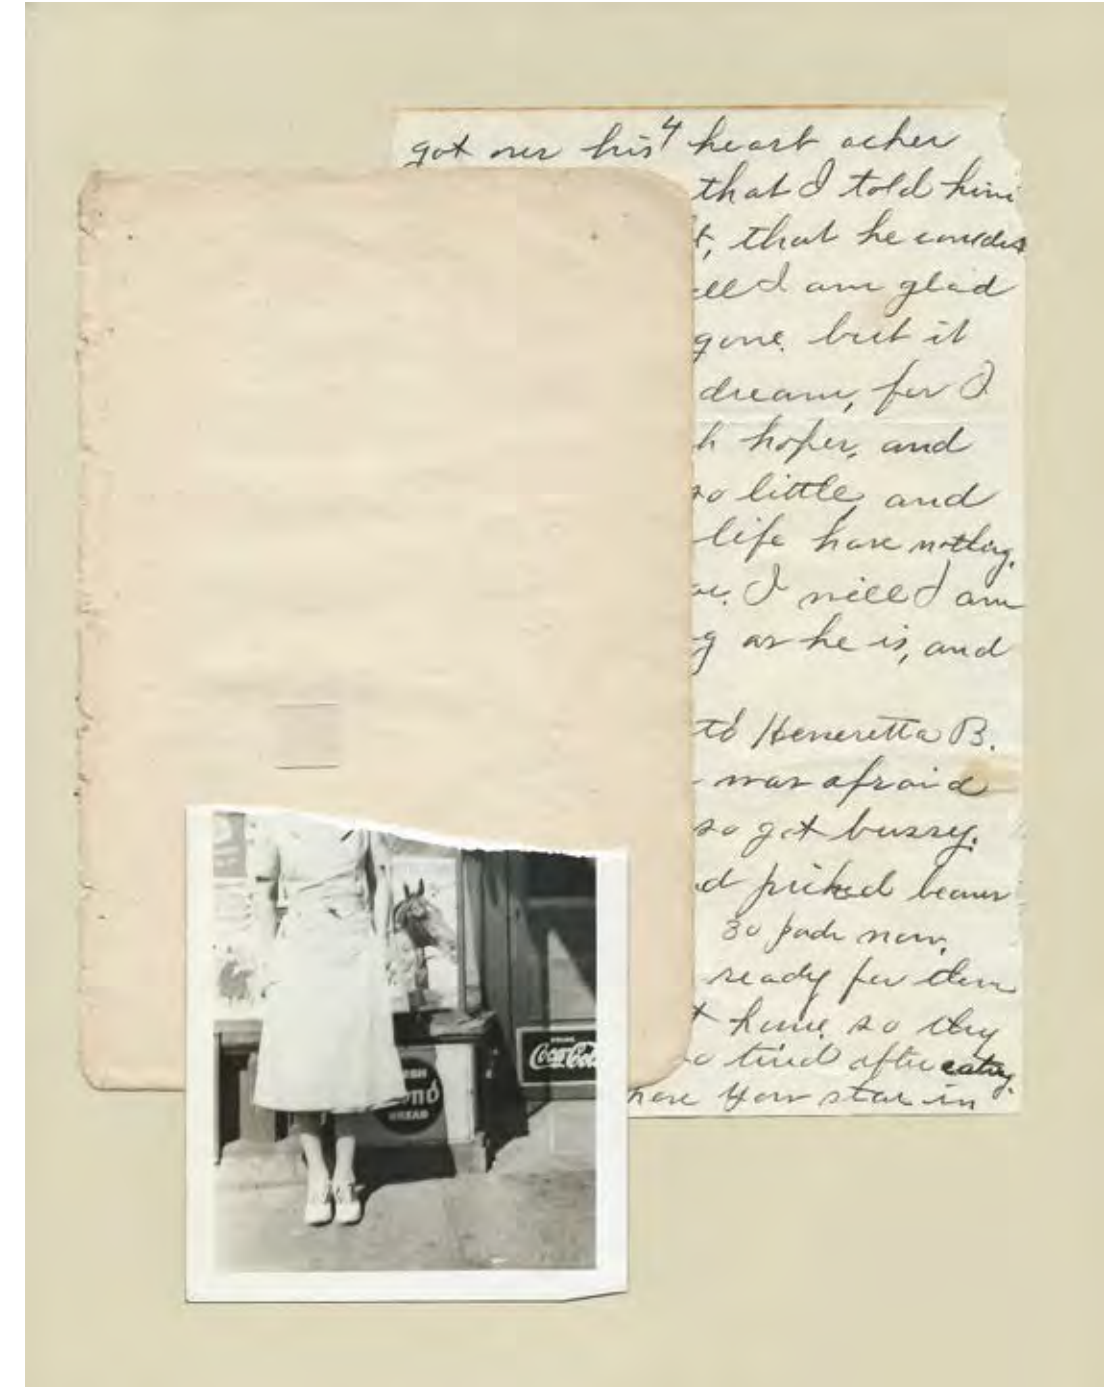 got over his 4 heart aches
that I told him
t, that he consider
ell I am glad
gone. but it
dream, for I
h hopes, and
so little, and
life have nothing.
I will I am
g as he is, and
to Heneretta B.
was afraid
so get bussy.
d picked beans
30 pods now.
ready for them
t home so they
so tired after eating.
have your star in
DRINK
Coca-Cola
SH
ond
BREAD